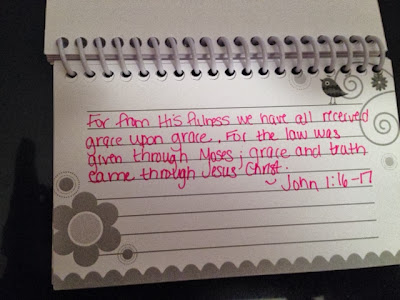 For from His fulness we have all received
grace upon grace. For the law was
given through Moses; grace and truth
came through Jesus Christ.
John 1:16-17